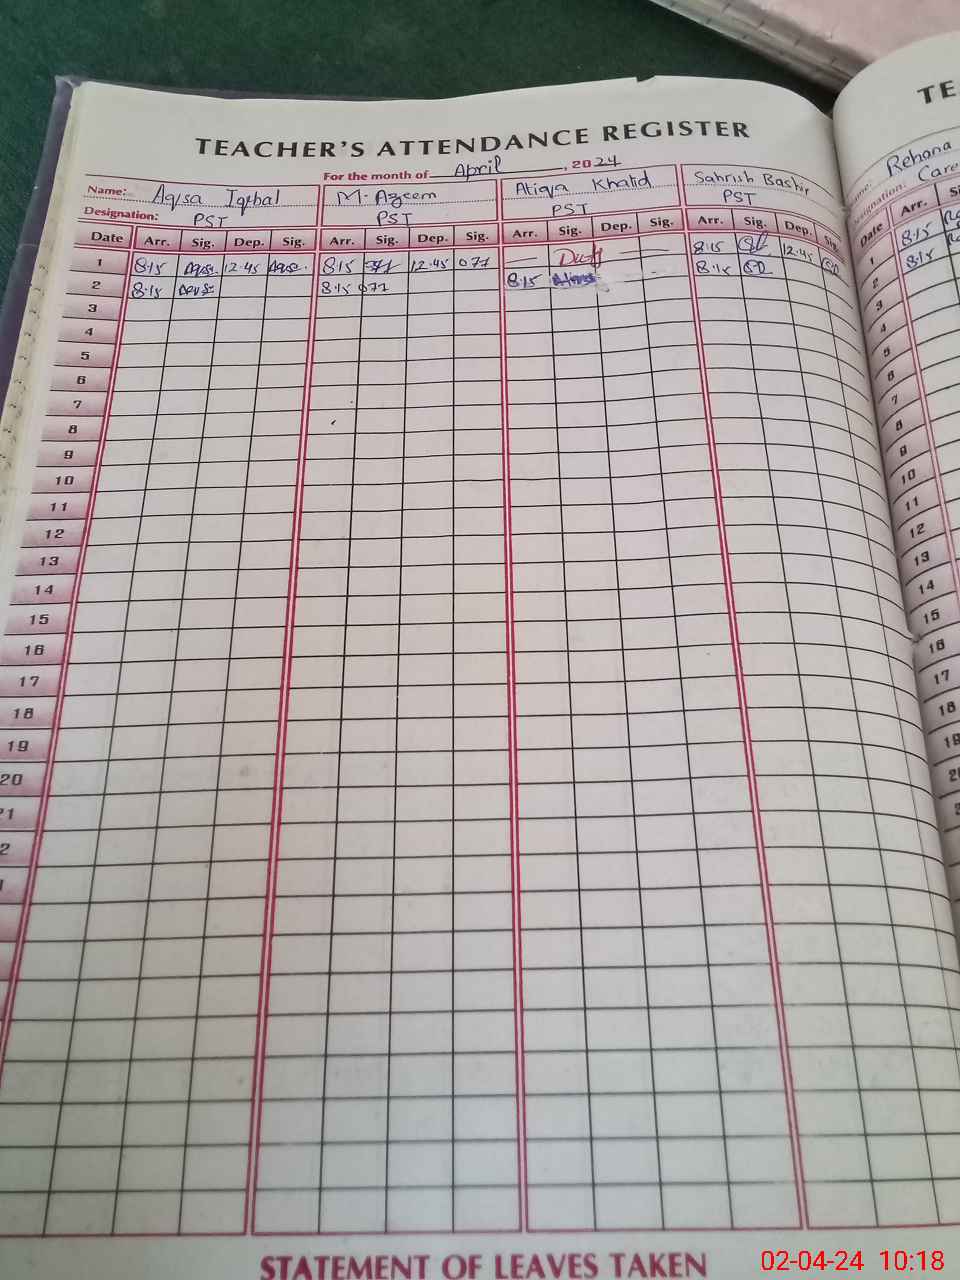 TEACHER'S ATTENDANCE REGISTER
For the month of April, 2024
Name: Aqsa Iqbal M. Azeem Atiqa Khalid Sahrish Bashir
Designation: PST PST PST PST
Date Arr. Sig. Dep. Sig. Arr. Sig. Dep. Sig. Arr. Sig. Dep. Sig. Arr. Sig. Dep. Sig.
1 8:15 Aqsa 12:45 Aqsa 8:15 12:45 — — 8:15 12:45
2 8:15 Aqsa 8:15 8:15 Atiqa 8:15
3
4
5
6
7
8
9
10
11
12
13
14
15
16
17
18
19
20
21
2
STATEMENT OF LEAVES TAKEN
TE
Name: Rehana
Designation: Care
Date Arr. Si
1 8:15
2 8:15
3
4
5
6
7
8
9
10
11
12
13
14
15
16
17
18
19
2
02-04-24 10:18